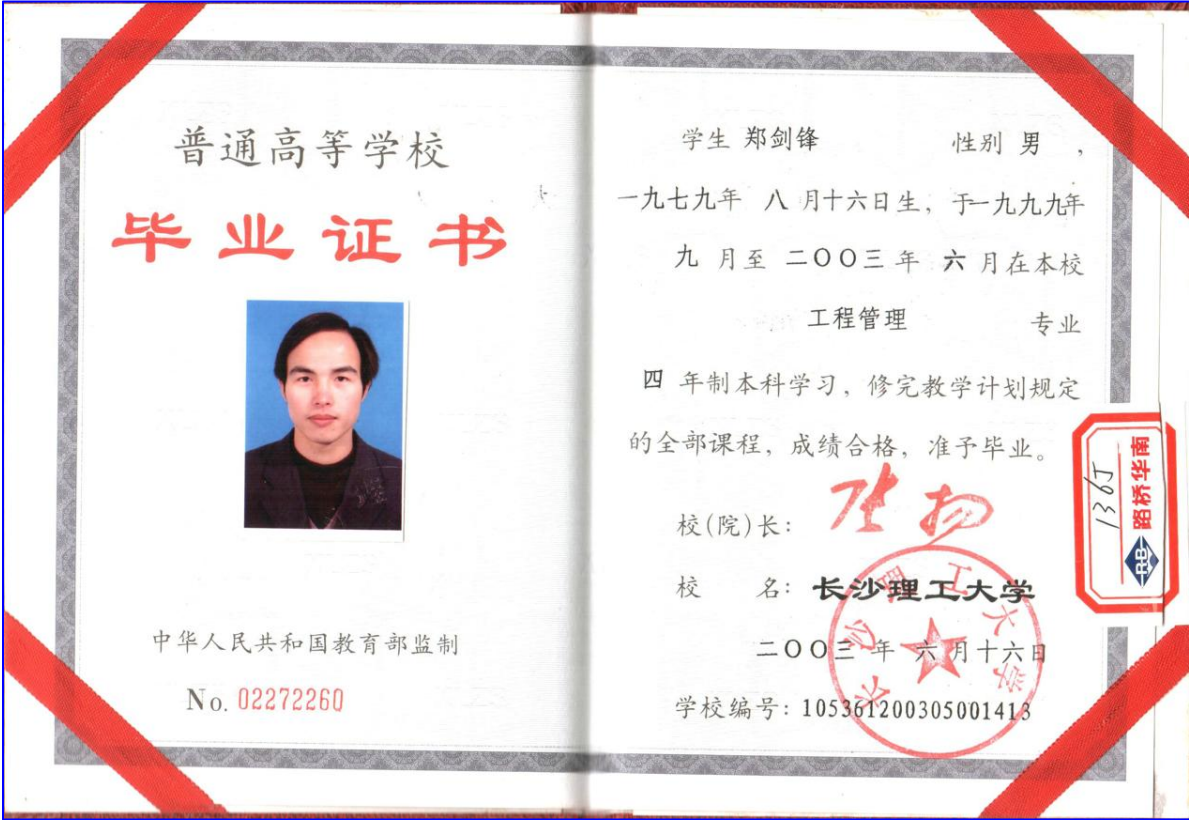 普通高等学校
毕业证书
中华人民共和国教育部监制
No. 02272260
学生 郑剑锋 性别 男 ,
一九七九年 八 月十六日生，于一九九九年
九 月至 二〇〇三 年 六 月在本校
工程管理 专业
四 年制本科学习，修完教学计划规定
的全部课程，成绩合格，准予毕业。
校(院)长：
校 名：长沙理工大学
二〇〇三 年 六 月十六日
学校编号：105361200305001413
长沙理工大学
1365
RB 路桥华南